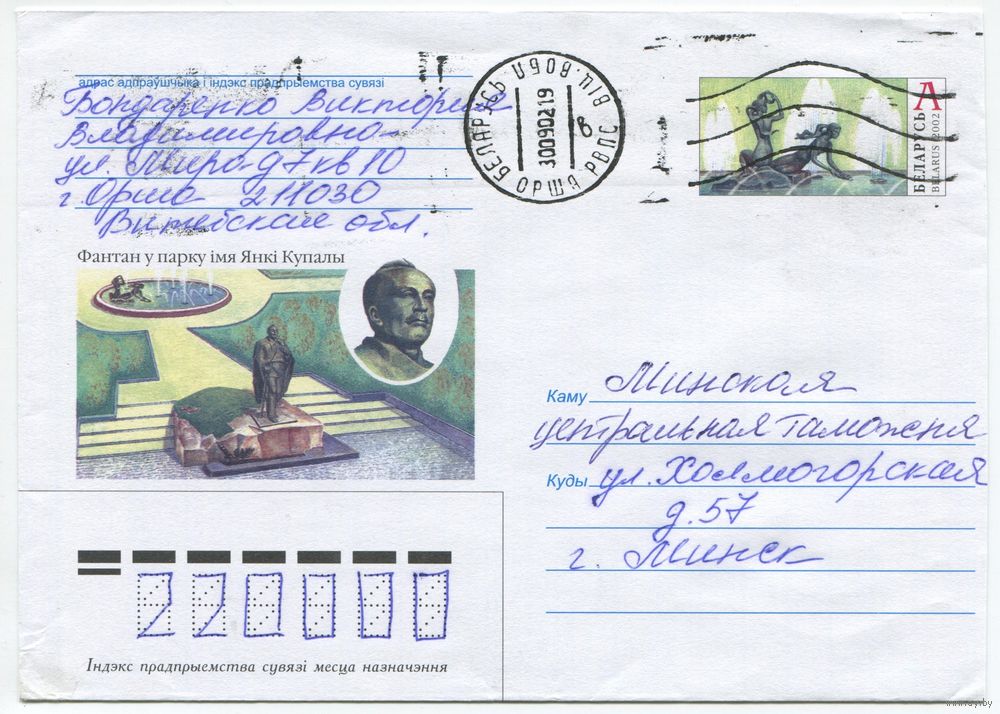 адрас адпраўшчыка і індэкс прадпрыемства сувязі
Бондаренко Виктория
Владимировна
ул. Мира д 7 кв 10
г. Орша 211030
Витебская обл.
БЕЛАРУСЬ
300902 19
в
ОРША РВПС
А
БЕЛАРУСЬ
BELARUS 2002
Фантан у парку імя Янкі Купалы
Каму Минская
центральная таможня
Куды ул. Холмогорская
д. 57
г. Минск
220000
Індэкс прадпрыемства сувязі месца назначэння